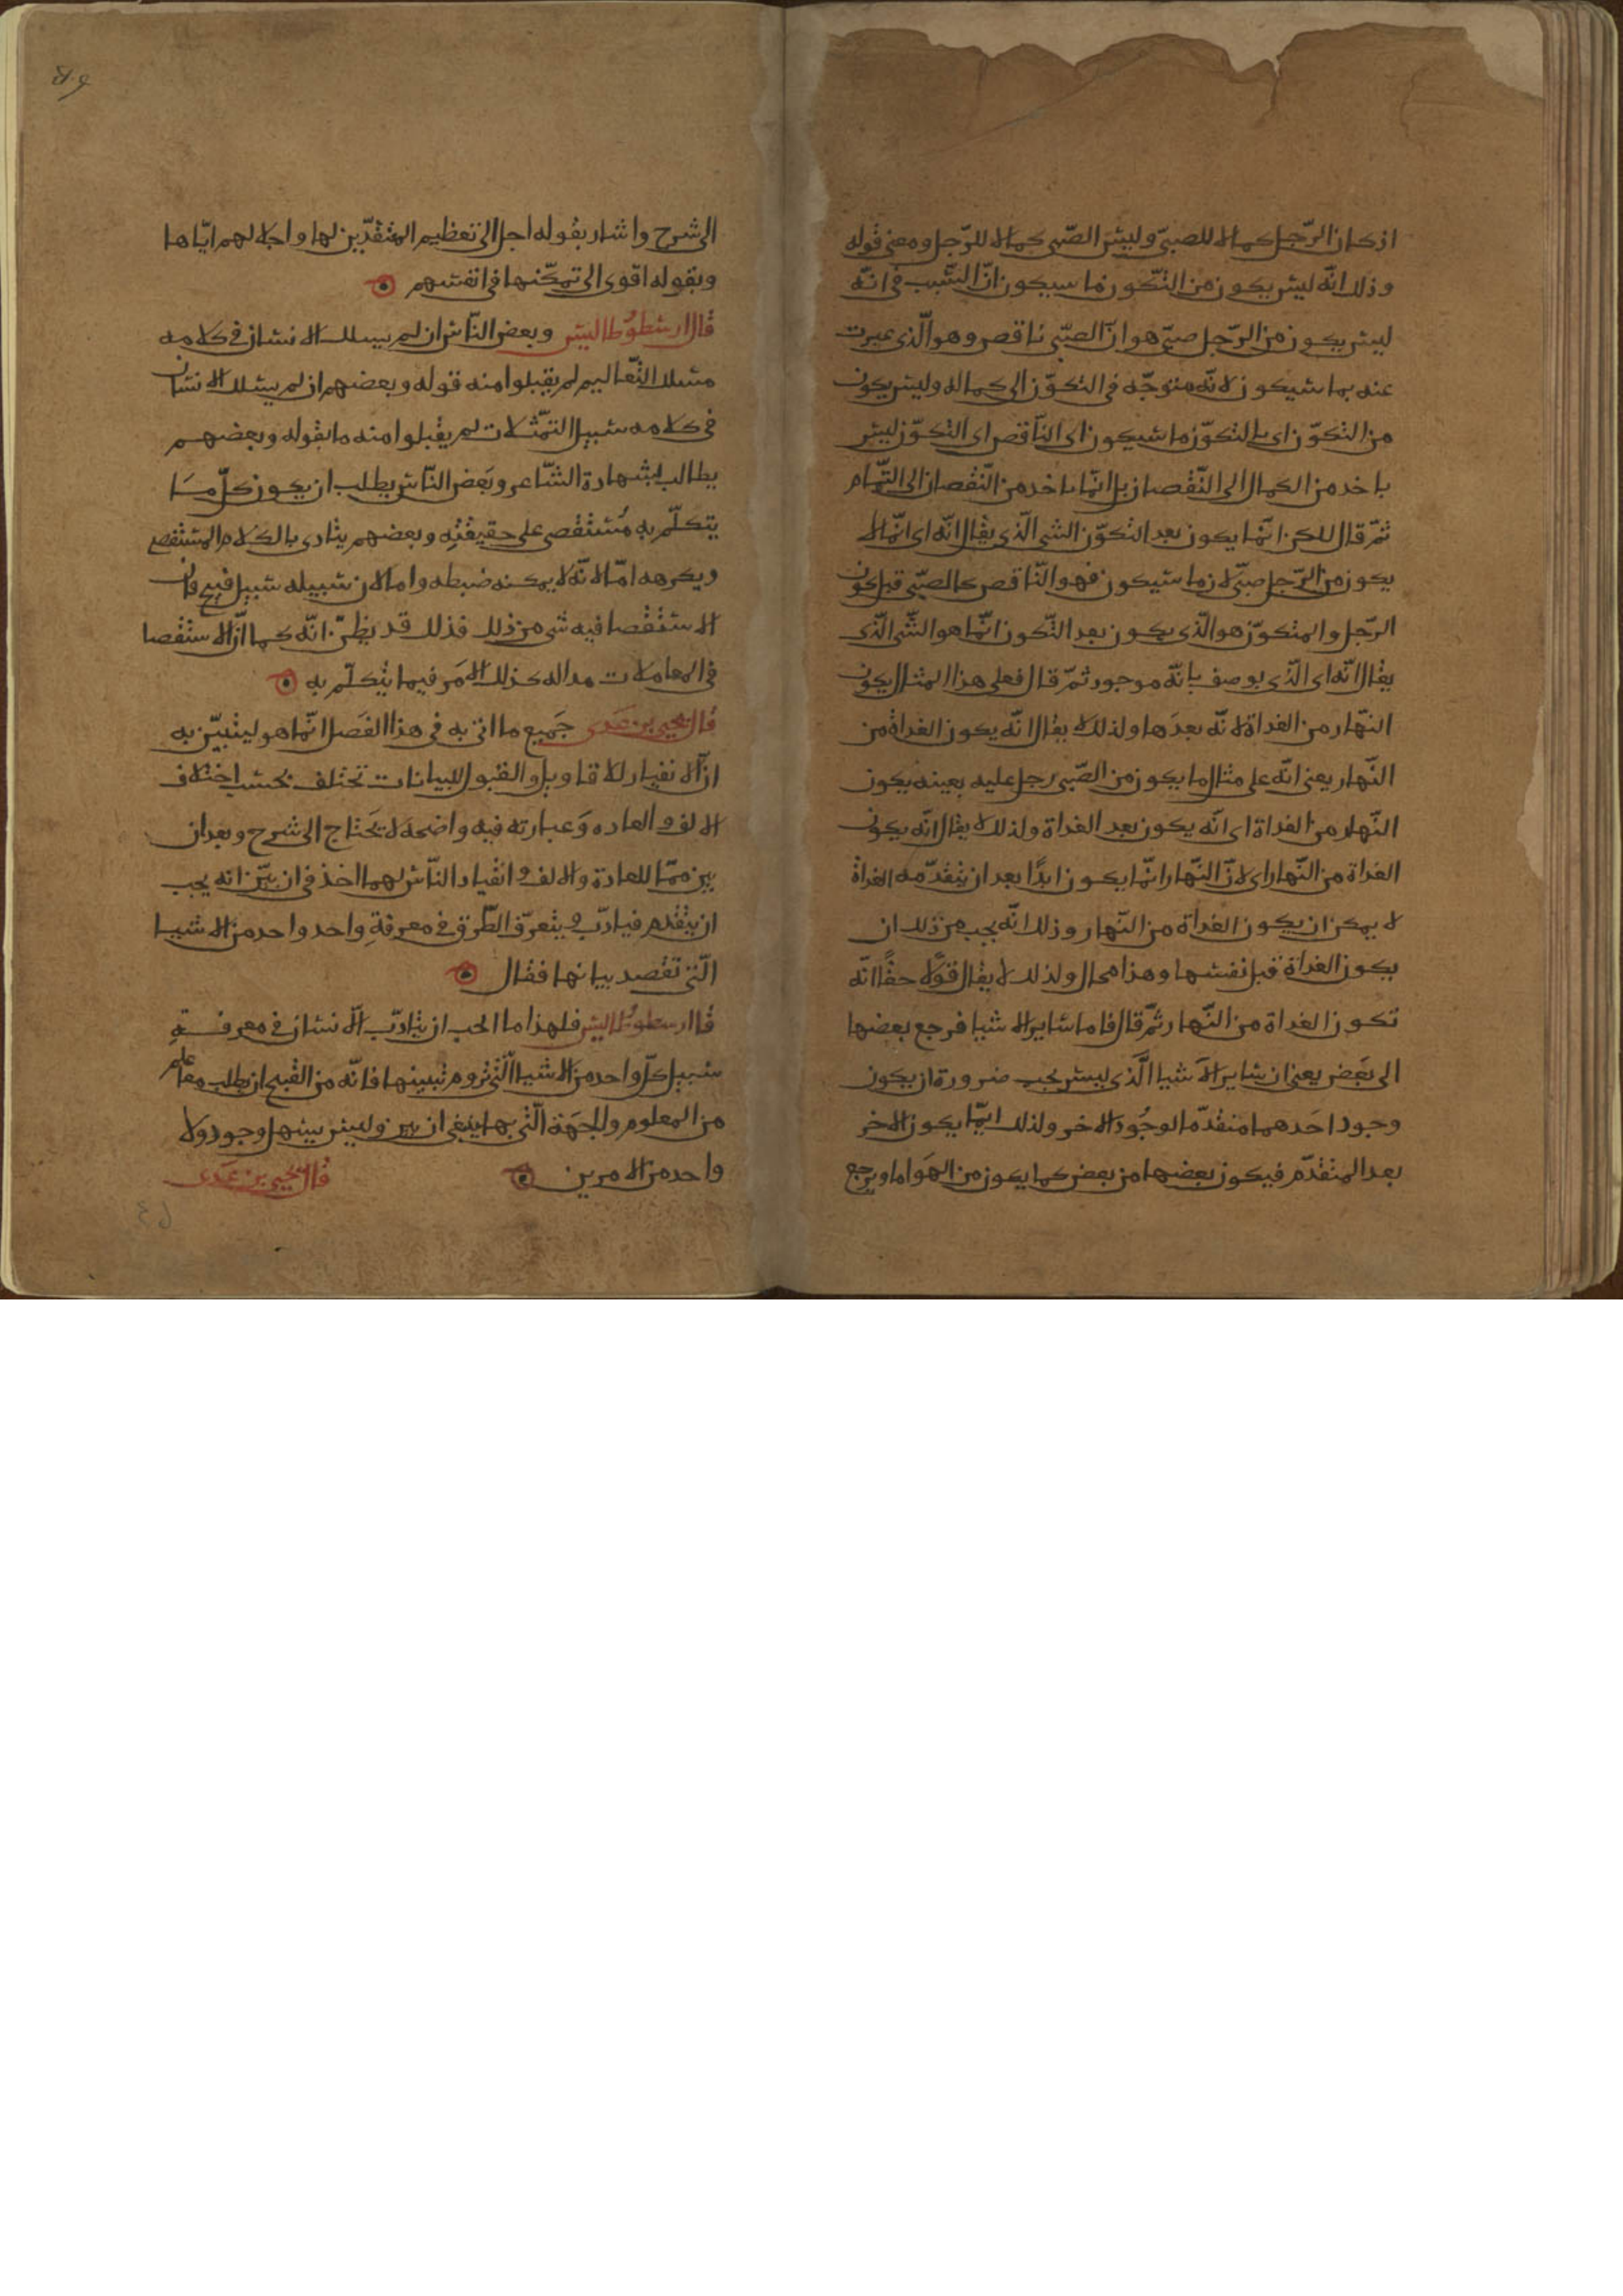 اذ كان الرّجل كمالا للصبيّ وليس الصّبي كمالا للرّجل ومعنى قوله
وذلك انّه ليس يكون من التّكون ما سيكون انّ السّبب في انّه
ليس يكون من الرّجل صبيّ هو انّ الصّبي ناقص وهو الّذى عبرت
عنه بما سيكون لانّه متوجّه في التكوّن الى كماله وليس يكون
من التكوّن اى بالتكوّن ما سيكون اى النّاقص اى التكوّن ليس
ياخذ من الكمال الى النّقصان بل انّما ياخذ من النّقصان الى التّمام
ثمّ قال لكن انّما يكون بعد التكوّن الشى الّذى يقال انّه اى انّما لا
يكون من الرّجل صبيّ لان ما سيكون فهو النّاقص كالصّبي قبل كون
الرّجل والمتكوّن هو الّذى يكون بعد التّكون انّما هو الشّى الّذى
يقال انّه اى الّذى يوصف بانّه موجود ثمّ قال فعلى هذا المثال يكون
النّهار من الغداة لانّه بعدها ولذلك لا يقال انّه يكون الغداة من
النّهار يعنى انّه على مثال ما يكون من الصّبي رجل عليه بعينه يكون
النّهار من الغداة اى انّه يكون بعد الغداة ولذلك لا يقال انّه يكون
الغداة من النّهار اى لانّ النّهار انّما يكون ابدًا بعد ان يتقدّمه الغداة
لا يمكن ان يكون الغداة من النّهار وذلك انّه يجب من ذلك ان
يكون الغداة قبل نفسها وهذا محال ولذلك لا يقال قولًا حقًا انّه
تكون الغداة من النّهار ثمّ قال فاما ساير الاشيا فرجع بعضها
الى بعض يعنى ان ساير الاشيا الّذى ليس يجب ضرورة ان يكون
وجود احدهما متقدّما لوجود الاخر ولذلك ايّما يكون الاخر
بعد المتقدّم فيكون بعضها من بعض كما يكون من الهوا ما ويرجع
الى شرح واشار بقوله اجل الى تعظيم المتقدّين لها واجلالهم ايّاها
وبقوله اقوى الى تمكّنها في انفسهم
قال ارسطوطاليس وبعض النّاس ان لم يسلك الانسان في كلامه
مسلك التّعاليم لم يقبلوا منه قوله وبعضهم ان لم يسلك الانسان
في كلامه سبيل التمّثلات لم يقبلوا منه ما يقوله وبعضهم
يطالب بشهادة الشّاعر وبعض النّاس يطلب ان يكون كلّ ما
يتكلّم به مُستقصى على حقيقته وبعضهم يتاذى بالكلام المستقصى
ويكرهه امّا لانّه لا يمكنه ضبطه واما لان سبيله سبيل قبيح فان
الاستقصا فيه شى من ذلك فذلك قد يظنّ انّه كما انّ الاستقصا
في المعاملات مداله كذلك الامر فيما يتكلّم به
قال يحيى بن عدى جميع ما اتى به في هذا الفصل انّما هو ليتبيّن به
ان الانقياد للاقاويل والقبول للبيانات تختلف بحسب اختلاف
الالف والعاده وعبارته فيه واضحة لا يحتاج الى شرح وبعد ان
بين ممّا للعادة والالف وانقياد النّاس لهما اخذ في ان بيّن انه يجب
ان يتقدم فيادّب ويتعرّف الطّرق في معرفة واحد واحد من الاشيا
الّتى تقصد بيانها فقال
قال ارسطوطاليس فلهذا ما الحب ان يتادّب الانسان في معرفة
سبيل كلّ واحد من الاشيا الّتى نروم تبينها فانّه من القبح ان يطلب معا علم
من المعلوم وللجهة الّتى بها ينبغى ان وليس بينهل وجود ولا
واحد من الامرين
قال يحيى بن عدى